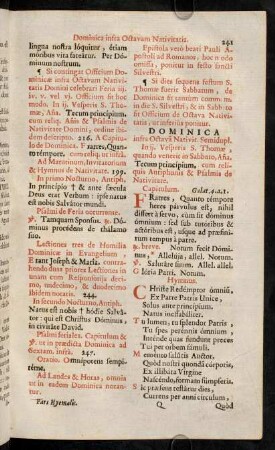 Dominica infra Octavam Nativitatis.
241
lingua nostra lóquitur, étiam
moribus vita fateátur. Per Dó-
minum nostrum.
¶ Si contingat Officium Domi-
nicæ infra Octavam Nativi-
tatis Domini celebrari Feria ij.
iij. v. vel vj. Officium sit hoc
modo. In ij. Vesperis S. Tho-
mæ, Aña, Tecum princípium,
cum reliq. Añis & Psalmis de
Nativitate Domini, eodem Or-
dine descriptis. 216. A Capitu-
lo de Dominica. Fratres, Quan-
to témpore, cum reliq. ut infra.
Ad Matutinum, Invitatorium
& Hymnus de Nativit. 195.
In primo Nocturno, Antiph.
In princípio † & ante sǽcula
Deus erat Verbum : ipse natus
est nobis Salvátor mundi.
Psalmi de Feria occurrente.
℣. Tamquam Sponsus. ℟. Dó-
minus procédens de thálamo
suo.
Lectiones tres de Homilia
Dominicæ in Evangelium :
Erant Joseph & María.
duas priores Lectiones in
unam cum Responsoriis
244.
In secundo Nocturno, Antiph.
Natus est nobis † hódie Salvá-
tor : qui est Christus Dóminus,
in civitáte David.
Psalmi feriales. Capitulum &
℣. ut in prædicta Dominica ad
Sextam. infra. 247.
Oratio. Omnípotens sempi-
térne,
Ad Laudes & Horas, omnia
ut in eadem Dominica
tantur.
Pars Hyemalis.
Epistola verò beati Pauli A-
postoli ad Romanos, hoc n
omissa, ponitur in festo sancti
Silvestri.
¶ Si dies sequens festum S.
Thomæ fuerit Sabbatum, de
Dominica fit tantum comm. in
die S. Silvestri, & in Sabb-to
fit Officium de Octava Nativi-
tatis, ut inferiùs ponitur.
DOMINICA
infra Octav. Nativit. Semidupl.
In ij. Vesperis S. Thomæ,
quando venerit in Sabbato, Aña,
Tecum princípium, cum reli-
quis Antiphonis & Psalmis de
Nativitate.
Capitulum. Galat. 4. a. 1.
FRatres, Quanto témpore
heres párvulus est, nihil
differt à servo, cùm sit dóminus
ómnium : sed sub tutóribus &
actóribus est, usque ad præfiní-
tum tempus à patre.
℟. breve. Notum fecit Dómi-
nus, * Allelúja, allel. Notum.
℣. Salutáre suum. Allel. allel.
Glória Patri. Notum.
Hymnus.
CHriste Redémptor ómniū,
Ex Patre Patris Unice,
Solus ante princípium
Natus ineffabíliter.
Tu lumen, tu splendor Patris
Tu spes perénnis ómnium,
Inténde quas fundunt preces
Tui per orbem fámuli.
Meménto salútis Auctor.
Quòd nostri quondá córporis,
Ex illibáta Vírgine
Nascéndo, formam súmpseris.
Sic præsens testátur dies,
Currens per anni círculum,
Q
Quòd